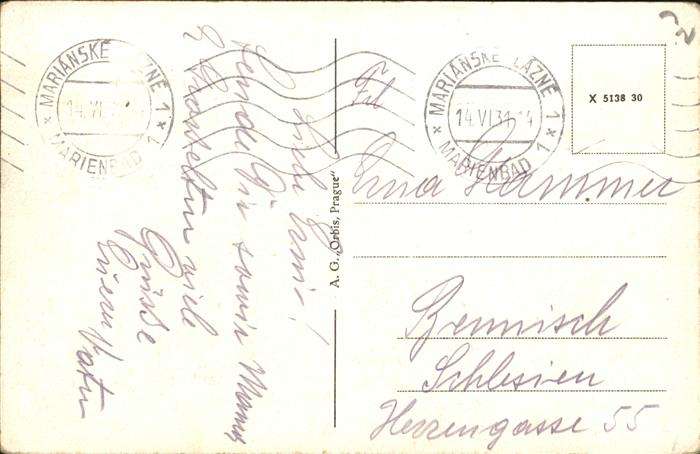 Liebe Erni!
Sende Dir sowie Mama
u. Geschwistern viele
Grüsse
Euer Vater
A. G. „Orbis, Prague"
MARIÁNSKÉ LÁZNĚ 1
14.VI.31
MARIENBAD 1
MARIÁNSKÉ LÁZNĚ 1
14.VI.31-14
MARIENBAD 1
X 5138 30
Frl
Erna Hammer
Bennisch
Schlesien
Herrengasse 55